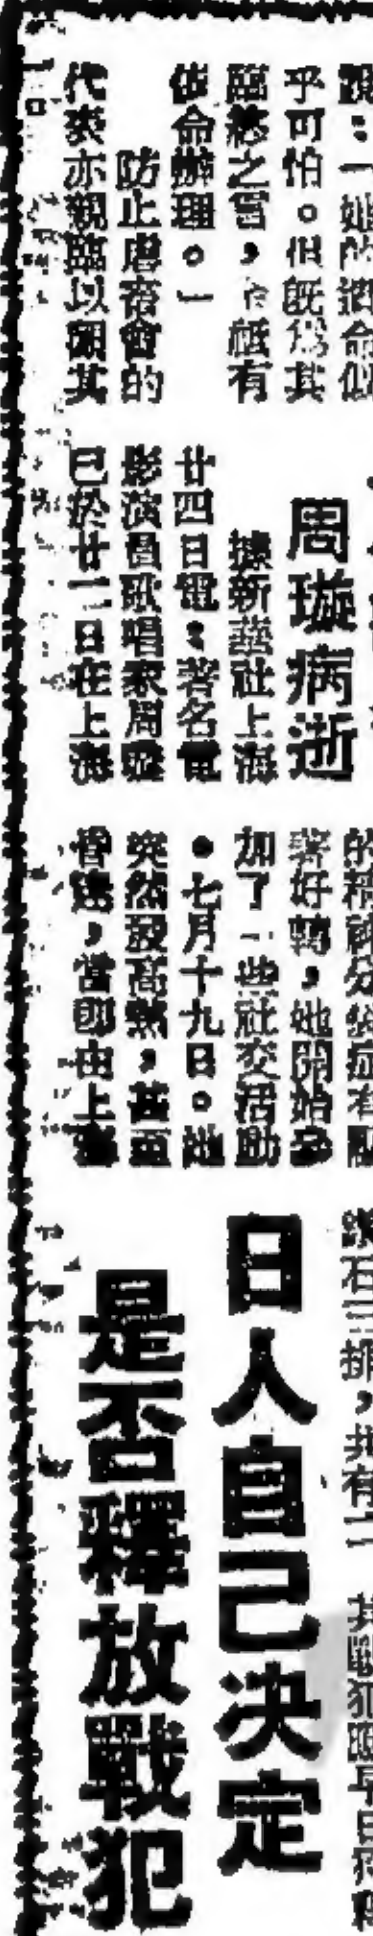 她的遺命似
乎可怕。但既為其
臨終之言，
依命辦理。」
防止虐畜會的
代表亦親臨以觀其
周璇病逝
據新華社上海
廿四日電：著名電
影演員歌唱家周璇
已於廿二日在上海
的精神分裂症有
著好轉，她開始參
加了一些社交活動
。七月十九日。她
突然發高熱，甚至
昏迷，當即由上海
日人自己決定
是否釋放戰犯